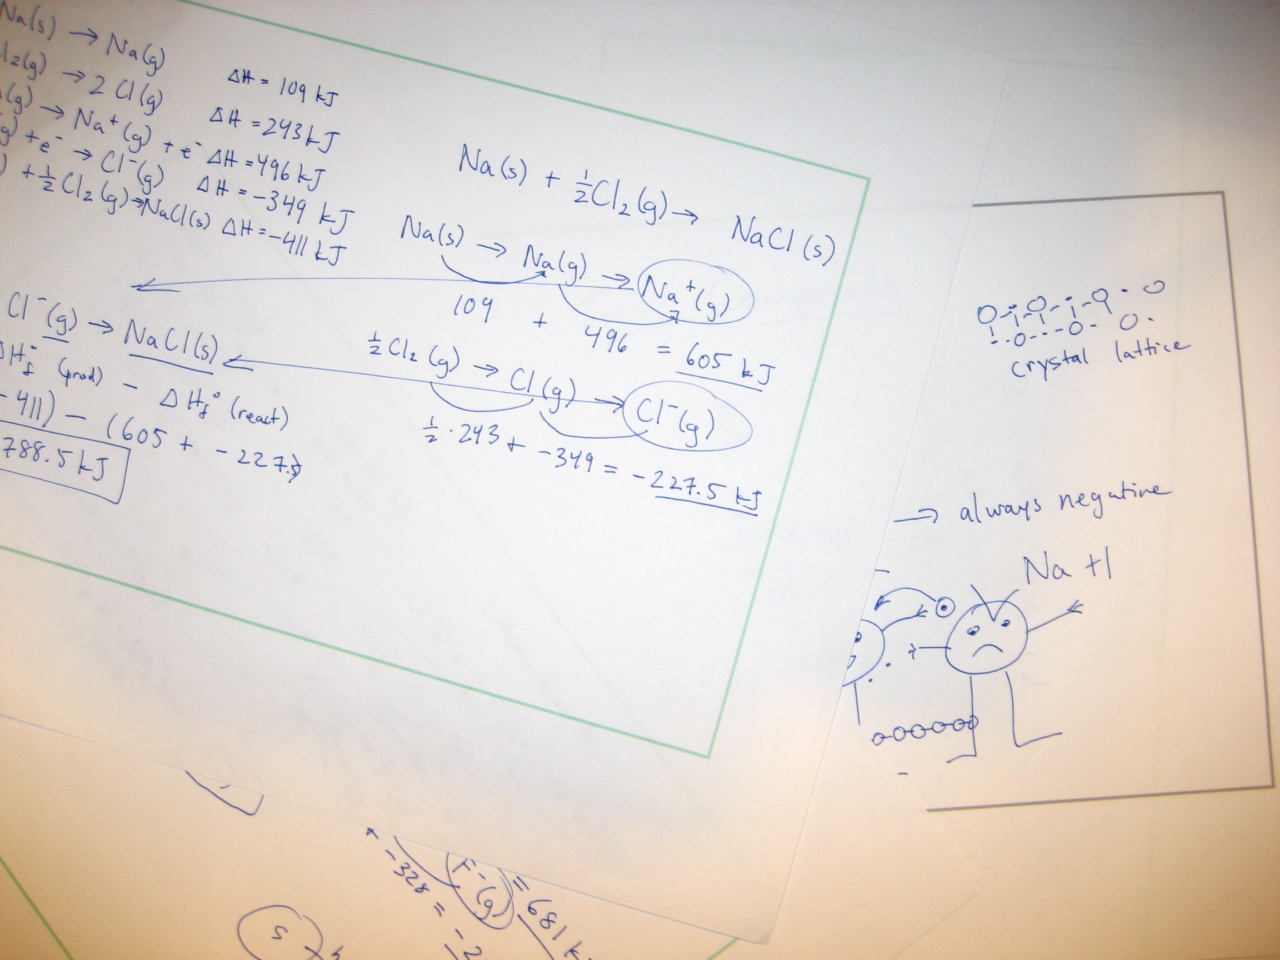 Na(s) → Na(g) ΔH = 109 kJ
Cl₂(g) → 2 Cl(g) ΔH = 243 kJ
(g) → Na⁺(g) + e⁻ ΔH = 496 kJ
(g) + e⁻ → Cl⁻(g) ΔH = -349 kJ
) + ½Cl₂(g) → NaCl(s) ΔH = -411 kJ
Na(s) + ½Cl₂(g) → NaCl(s)
Na(s) → Na(g) → Na⁺(g)
109 + 496 = 605 kJ
½Cl₂(g) → Cl(g) → Cl⁻(g)
½·243 + -349 = -227.5 kJ
Cl⁻(g) → NaCl(s)
ΔHf° (prod) - ΔHf° (react)
-411) - (605 + -227.5)
788.5 kJ
crystal lattice
→ always negative
Na +1
F⁻(g) = 681 k
-328 = -2
s